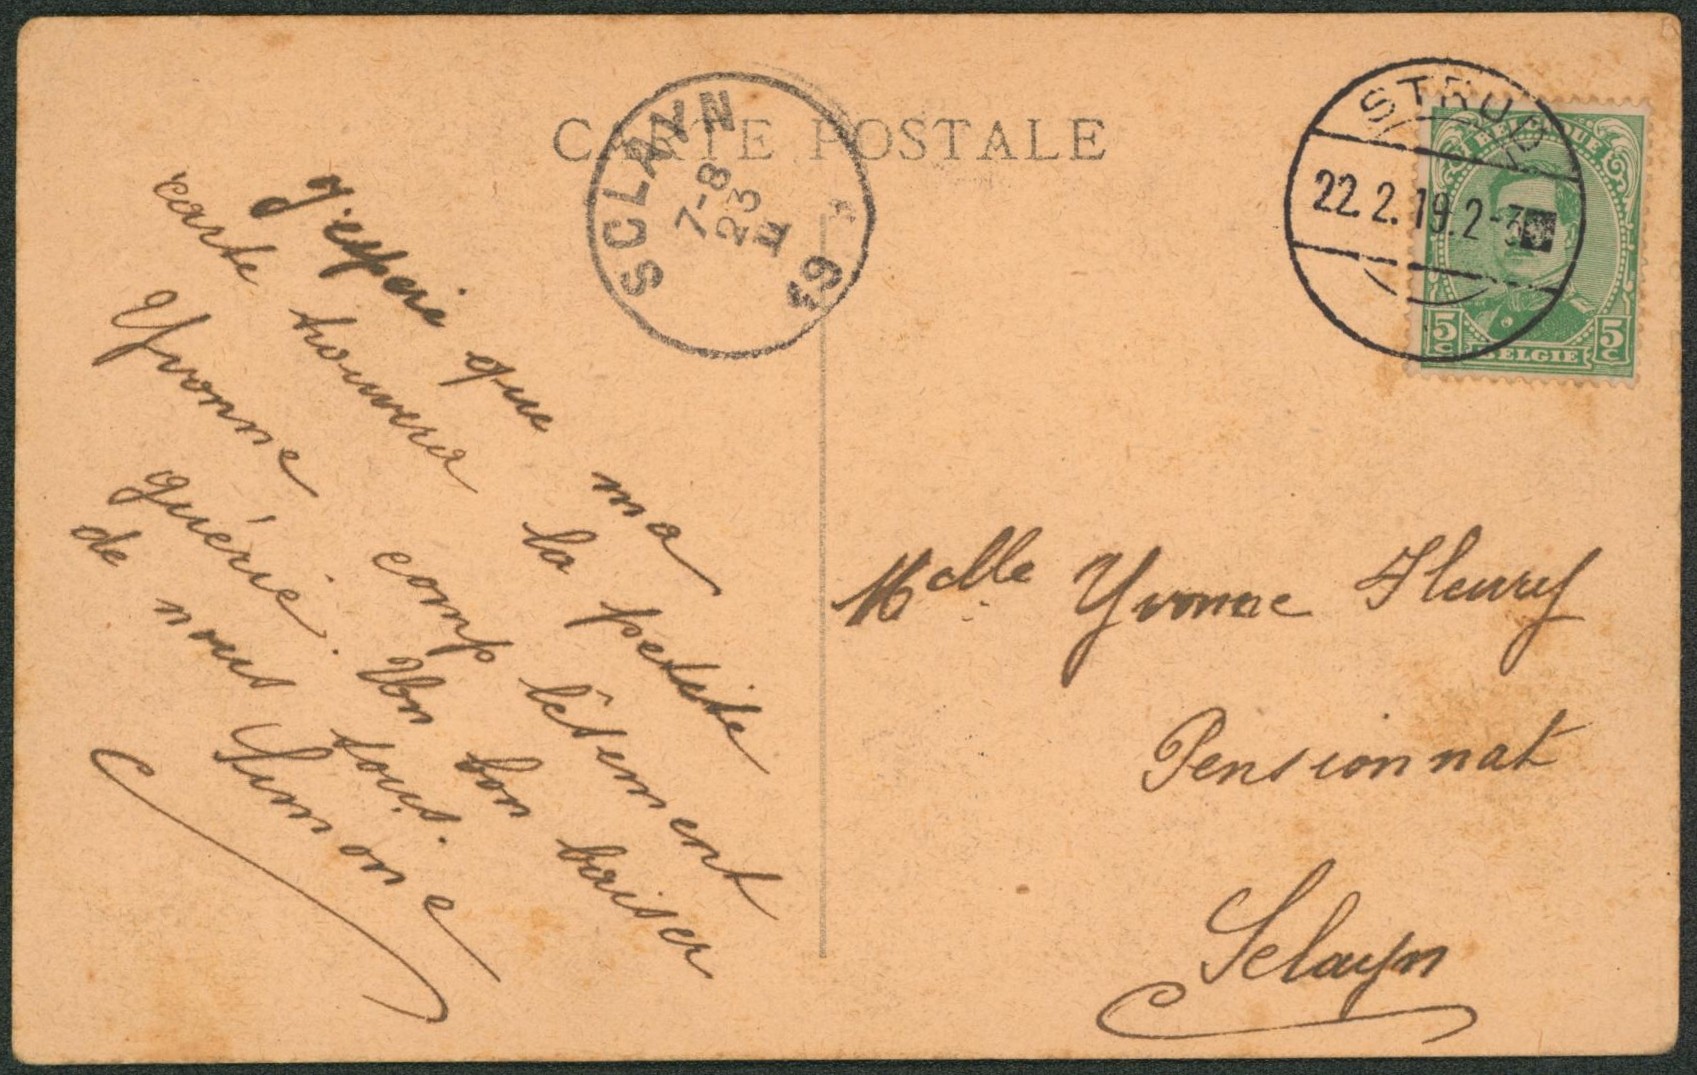 CARTE POSTALE
SCLAYN
7-8
23
II
19
STRUD
22.2.19.2-3
BELGIQUE
5c 5c
BELGIE
J'espère que ma
carte trouvera la petite
Yvonne complètement
guérie. Un bon baiser
de nous tous.
Simone
Melle Yvonne Fleury
Pensionnat
Sclayn